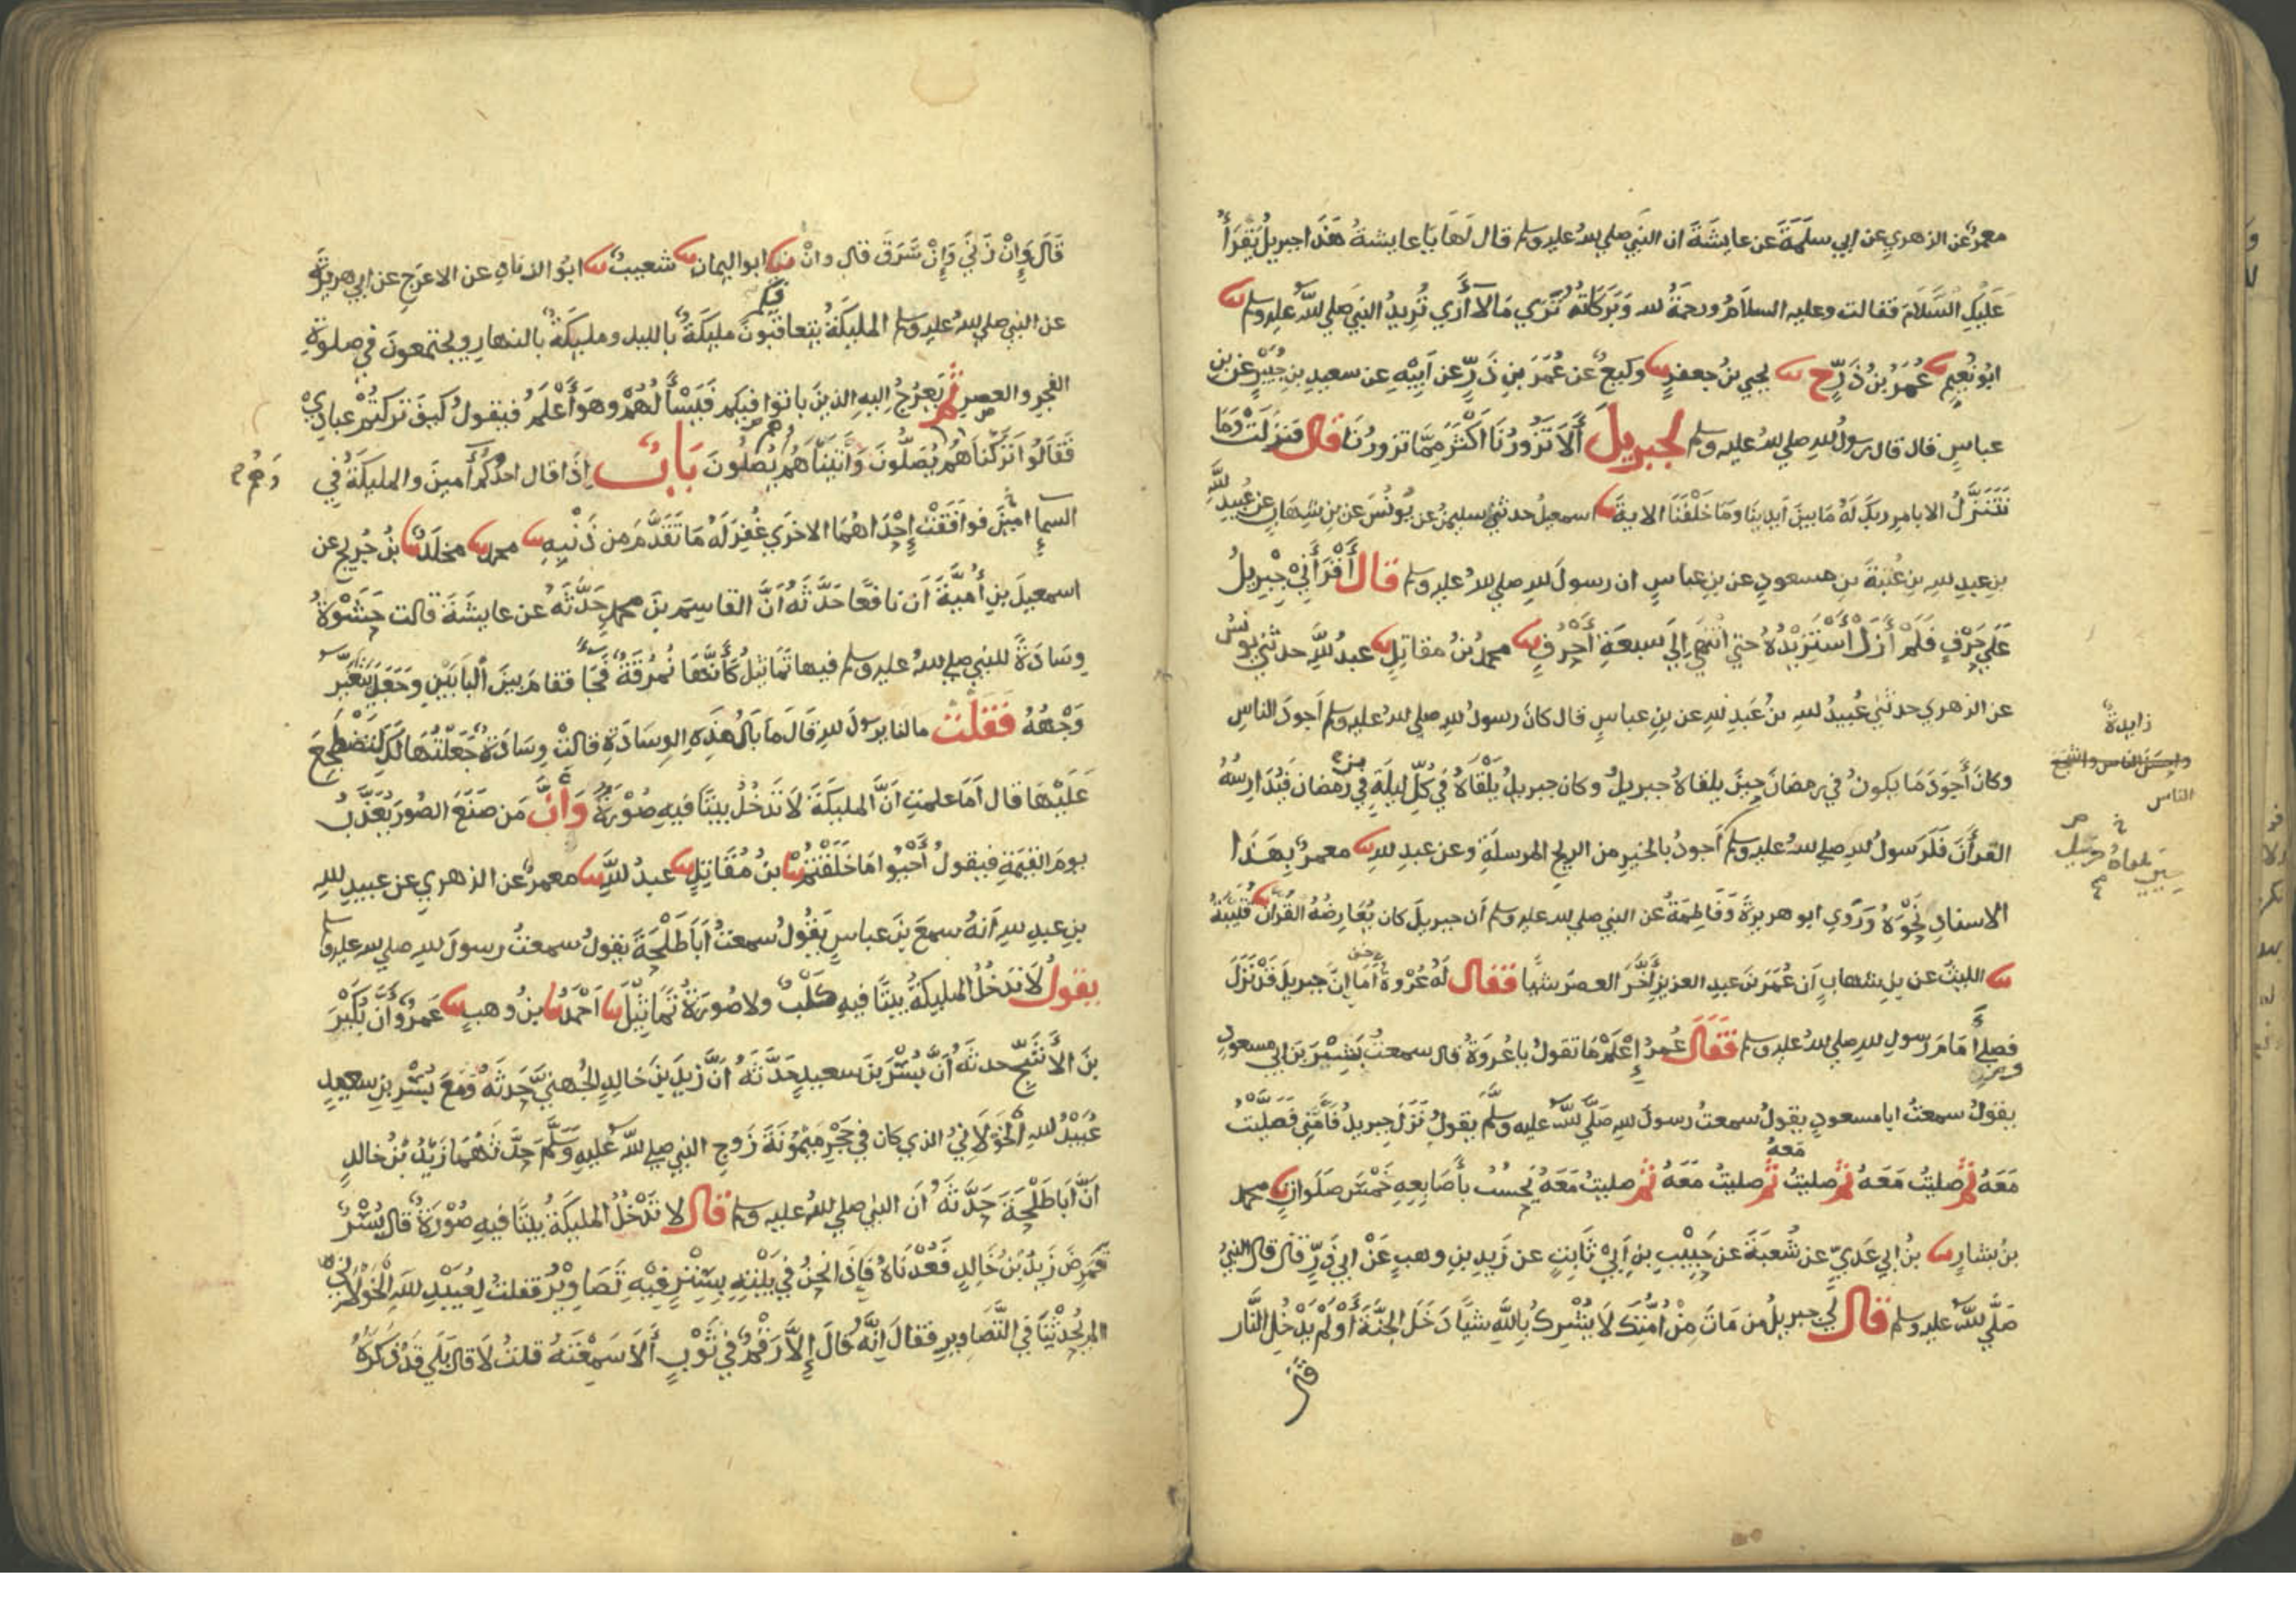 معمرٌ عن الزهري عن ابي سلمَةَ عن عايشَةَ ان النبي صلي لله عليه وسلم قال لَهَا يَا عايشةُ هَذَا جبريلُ يَقْرَأُ
عَلَيْكِ السَّلَامَ فقالت وعليه السلامُ ورحمَةُ لله وَبَرَكَاتُهُ تَرَي مَا لَا أَرَي تُرِيدُ النبيَ صلي للَّه عليه وسلم نا
ابُو نُعِيم نا عُمَرُ بنُ ذَرٍّ ح نا يحيي بنُ جعفرٍ نا وكيعٌ عن عُمَرَ بنِ ذَرٍّ عن اَبِيْهِ عن سعيدِ بنِ جُبَيْرٍ عن بنِ
عباسٍ قال قال رسولُ لله صلي لله عليه وسلم لجبريلَ أَلَا تَزُورُنَا اَكْثَرَ مِمَّا تزورُنَا قال فنزلَتْ وَمَا
نَتَنَزَّلُ الا بامرِ ربكَ لَهُ مَا بينَ اَيدِينَا وَمَا خَلْفَنَا الاية نا اسمعيلُ حدثني سليمنُ عن يُونُسَ عن بنِ شِهَابٍ عن عُبيدِ للَّهِ
بنِ عبدِ للهِ بنِ عُتبةَ بنِ مسعودٍ عن بنِ عباسٍ ان رسولَ للهِ صلي للهُ عليه وسلم قال أَقْرَأَنِيْ جِبْرِيلُ
عَلَي حَرْفٍ فَلَمْ أَزَلْ أَسْتَزِيْدُهُ حتي انْتَهَي إِلَي سَبعَةِ أَحْرُفٍ نا محمدُ بنُ مقاتلٍ نا عبدُ للَّهِ حدثني يونسُ
عن الزهري حدثني عُبيدُ للهِ بنُ عَبدِ للهِ عن بنِ عباسٍ قال كانَ رسولُ للهِ صلي للهُ عليه وسلم اَجودَ الناسِ
وكانَ أَجوَدَ مَا يكونُ في رمضانَ حِينَ يلقاهُ جبريلُ وكان جبريلُ يَلْقَاهُ في كُلِّ ليلَةٍ في رمضان فَيُدَارِسُهُ
القرأَنَ فَلَرَسولُ للهِ صلي للهُ عليه وسلم أَجودُ بالخيرِ من الريحِ المرسلَةِ وعن عبدِ للهِ نا معمرٌ بِهَذَا
الاسنادِ نَحْوَهُ وَرَوي ابو هريرَةَ وَفَاطِمَةُ عن النبي صلي لله عليه وسلم أن جبريلَ كان يُعَارِضُهُ القرأَنَ نا قُتَيْبَةُ
نا الليثُ عن بن شهابٍ أَن عُمَرَ بنَ عبدِ العزيزِ أَخَّرَ العصرَ شيئًا فقال لَهُ عُرْوَةُ أَمَا إِنَّ جبريلَ قَدْ نَزَلَ
فصلي أَمَامَ رَسولِ للهِ صلي للهُ عليه وسلم فَقَالَ عُمرُ إِعْلَمْ مَا تقولُ يا عُروَةُ قال سمعتُ بَشِيْرَ بنَ ابي مسعودٍ
يقولُ سمعتُ ابا مسعودٍ يقولُ سمعتُ رسولَ للهِ صَلَّي للَّهُ عليه وسلَّمَ يقولُ نَزَلَ جبريلُ فَأَمَّنِي فَصَلَّيْتُ
مَعَهُ ثم صليتُ مَعَهُ ثم صليتُ ثم صليتُ مَعَهُ ثم صليتُ مَعَهُ يَحْسُبُ بأَصَابِعِهِ خَمْسَ صَلَواتٍ نا محمد
معهُ
بن بشارٍ نا بنُ ابي عَدِيٍّ عن شُعبَةَ عن حَبِيْبِ بنِ اَبِيْ ثَابِتٍ عن زَيدِ بنِ وهبٍ عَنْ ابي ذَرٍّ قال قال النبيُ
صَلَّي للَّه عليه وسلم قال لي جبريلُ من مَاتَ مِنْ أُمَّتِكَ لَا يُشْرِكُ بِاللَّهِ شيًا دَخَلَ الجنَّةَ أَوْ لَمْ يَدْخُلِ النَّار
زايدة
الناس
قَالَ وَإِنْ زَنَيَ وَإِنْ سَّرَقَ قال وانْ نا ابو اليمانِ نا شعيبٌ نا ابُو الزنادِ عن الاعرَجِ عن ابي هريرَةَ
عن النبي صلي للهُ عليه وسلم المليكَةُ يتعاقبُونَ مليكَةٌ بالليل ومليكَةٌ بالنهارِ ويجتمعونَ في صلوةِ
فيكم
الفجرِ والعصرِ ثم يَعرُجُ اليهِ الذينَ باتوا فيكم فَيَسْأَلُهُمْ وهوَ أَعْلَمُ فيقولُ كيفَ تركتُمْ عبادِيْ
فَقَالُوا تَرَكْنَاهُمْ يُصَلُّونَ وَأَتَيْنَاهُمْ يُصَلُّونَ بَابٌ إِذَا قال احدُكُم أَمينَ والمليكَةُ في
وَهُم
السمإِ امينَ فوافَقَتْ إِحْدَاهُمَا الاخرَي غُفِرَ لَهُ مَا تَقَدَّمَ مِن ذَنْبِهِ نا محمد نا مخلَدٌ نا بنُ جُرَيجٍ عن
اسمعيلَ بنِ أُميَّةَ اَن نافعًا حَدَّثَهُ أَنَّ القاسِمَ بنَ محمدٍ حَدَّثَهُ عن عايشَةَ قالت حَشَوْتُ
وِسَادَةً للنبي صلي للهُ عليه وسلم فيها تَمَاثِيلُ كَأَنَّهَا نُمرُقَةٌ فَجَا فقامَ بينَ البَابَيْنِ وَجَعَلَ يَتَغَيَّرُ
وَجْهُهُ فَقَلْت مالنا يرسولَ للهِ قَالَ مَا بَالُ هَذِهِ الوِسَادَةِ قالتْ وِسَادَةٌ جَعَلْتُهَا لَكَ لِتَضْطَجِعَ
عَلَيْهَا قال أَمَا علمتِ اَنَّ المليكَةَ لَا تَدخُلُ بيتًا فيهِ صُوْرَةٌ وَأَنَّ مَن صَنَعَ الصُورَ يُعَذَّبُ
يومَ القيمَةِ فيقولُ أَحْيُوا مَا خَلَقْتُمْ نا بنُ مُقَاتِلٍ نا عبدُ للَّهِ نا معمرٌ عن الزهري عن عبيدِ للهِ
بنِ عبدِ للهِ أَنَهُ سمعَ بنَ عباسٍ يَقُولُ سمعتُ أَبَا طَلْحَةَ يقولُ سمعتُ رسولَ للهِ صلي لله عليه وسلم
يقولُ لَا تَدخُلُ المليكَةُ بيتًا فيهِ كَلْبٌ ولا صُورَةُ تَمَاثِيْلَ نا اَحْمَدُ نا بنُ وهبٍ نا عَمرٌو أَنَّ بُكَيْرَ
بنَ الأَشَجِّ حدثَهُ أَنَّ بُسْرَ بنَ سعيدٍ حَدَّثَهُ أَنَّ زيدَ بنَ خالدٍ الجُهنيَّ حَدثَهُ وَمَعَ بُسْرِ بنِ سعيدٍ
عُبَيْدُ للهِ الخَوْلَانِيُ الذي كان في حَجْرِ مَيْمُوْنَةَ زَوجِ النبي صلي للَّهُ عليهِ وَسَلَّمَ حَدَّثَهُمَا زَيْدُ بنُ خالدٍ
أَنَّ أَبَا طَلْحَةَ حَدَّثَهُ أَن النبي صلي للهُ عليه وسلم قال لا تَدْخُلُ المليكَةُ بيتًا فيهِ صُوْرَةٌ قال بُسْرٌ
فَمَرِضَ زَيدُ بنُ خَالِدٍ فَعُدْنَاهُ فَإِذَا نحنُ في بَيْتِهِ بِسِتْرٍ فِيْهِ تَصَاوِيْرُ فقلتُ لِعُبَيْدِ للَّهِ الخَوْلَانِيِّ
الم يُحَدِّثْنَا في التَّصَاويرِ فقالَ اِنَّهُ قَالَ إِلَّا رَقْمٌ في ثَوْبٍ أَلَا سَمِعْتَهُ قلتُ لَا قال بَلَي قَدْ ذَكَرَهُ